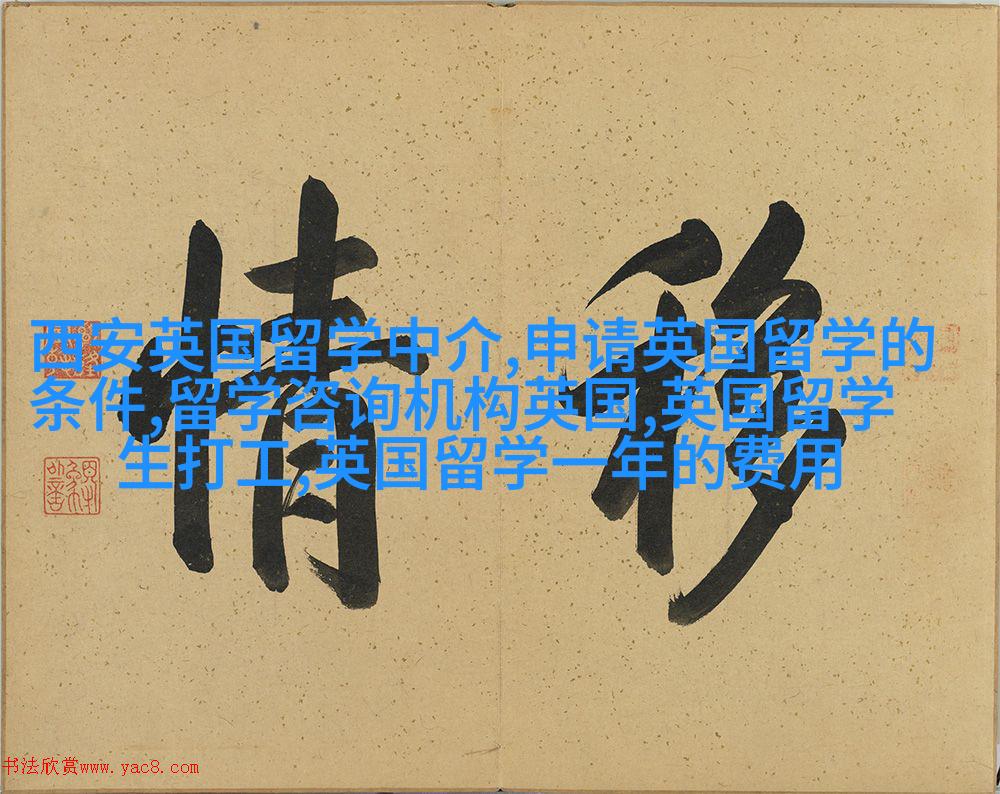 移情
西安英国留学中介,申请英国留学的
条件,留学咨询机构英国,英国留学
生打工,英国留学一年的费用
书法欣赏www.yac8.com